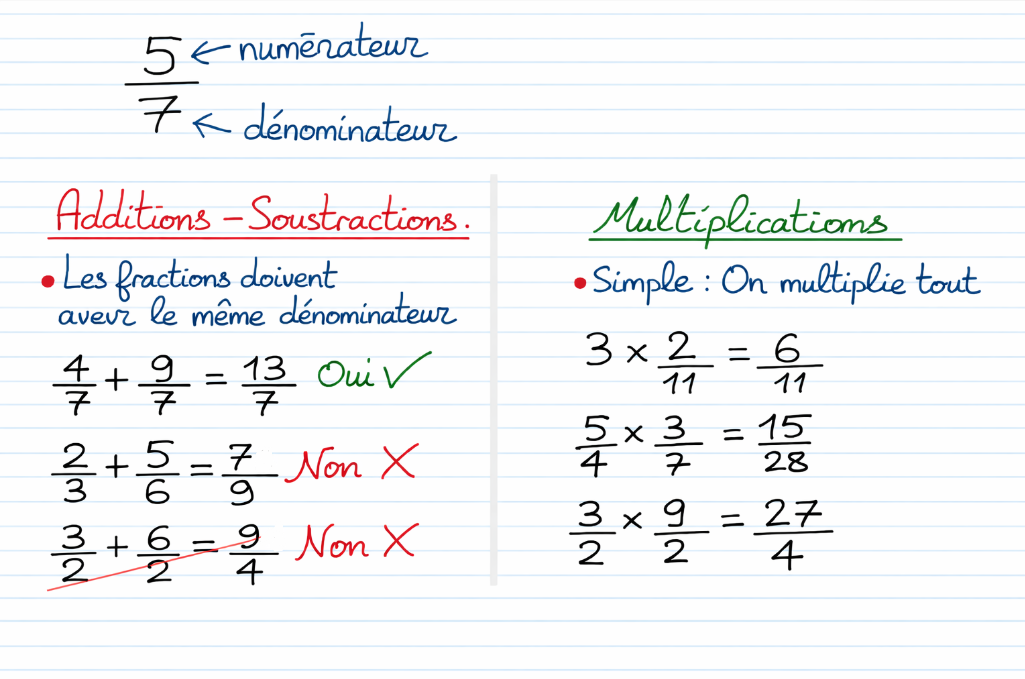 5 ← numērateur
7 ← dénominateur
Additions - Soustractions.
• Les fractions doivent
aveur le même dénominateur
4/7 + 9/7 = 13/7 Oui ✓
2/3 + 5/6 = 7/9 Non X
3/2 + 6/2 = 9/4 Non X
Multiplications
• Simple : On multiplie tout
3 × 2/11 = 6/11
5/4 × 3/7 = 15/28
3/2 × 9/2 = 27/4